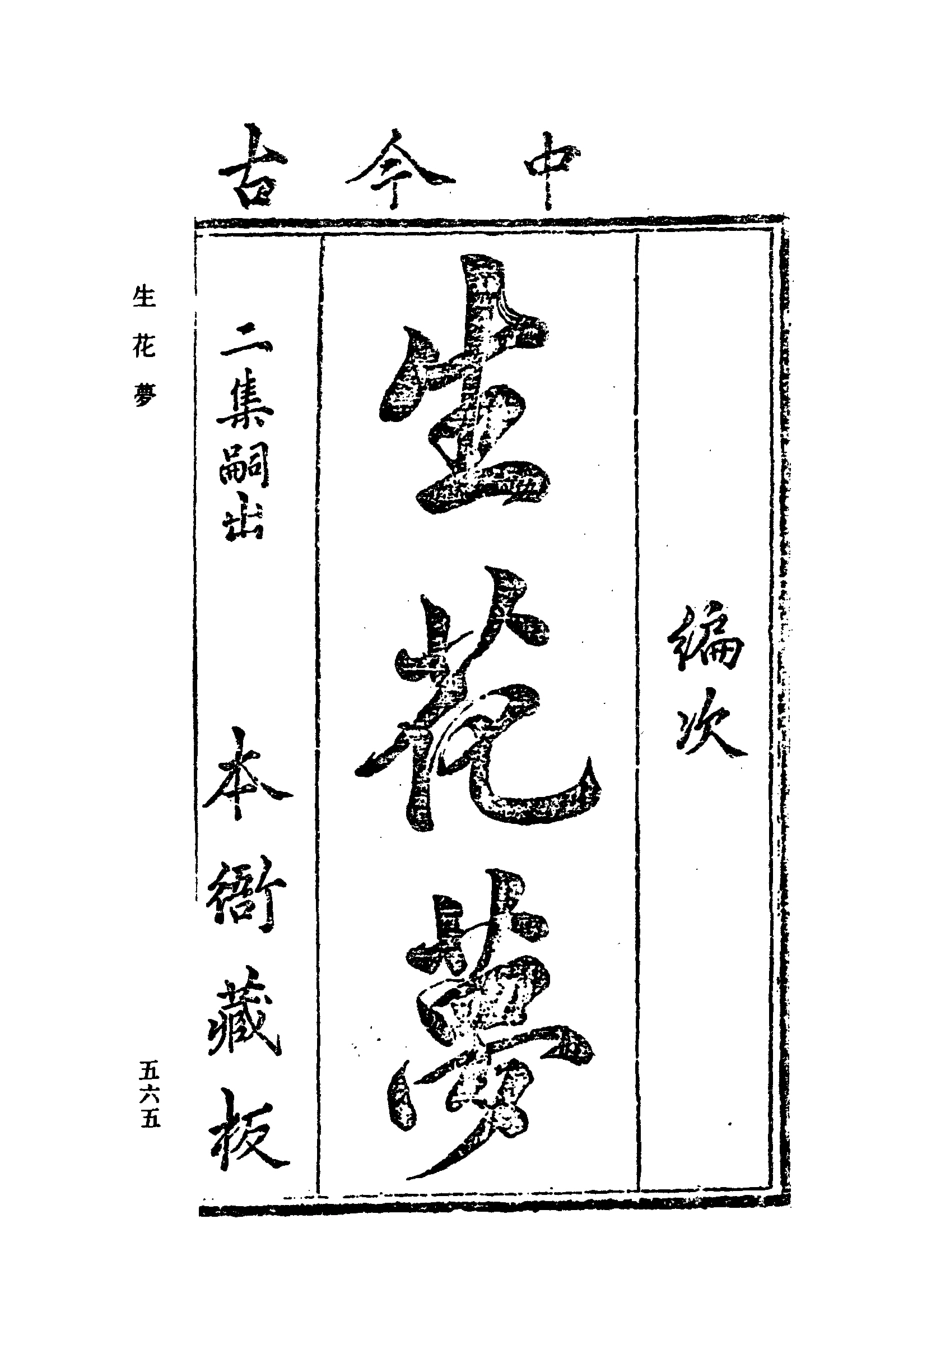 中今古
編次
生花夢
二集嗣出
本衙藏板
生花夢
五六五